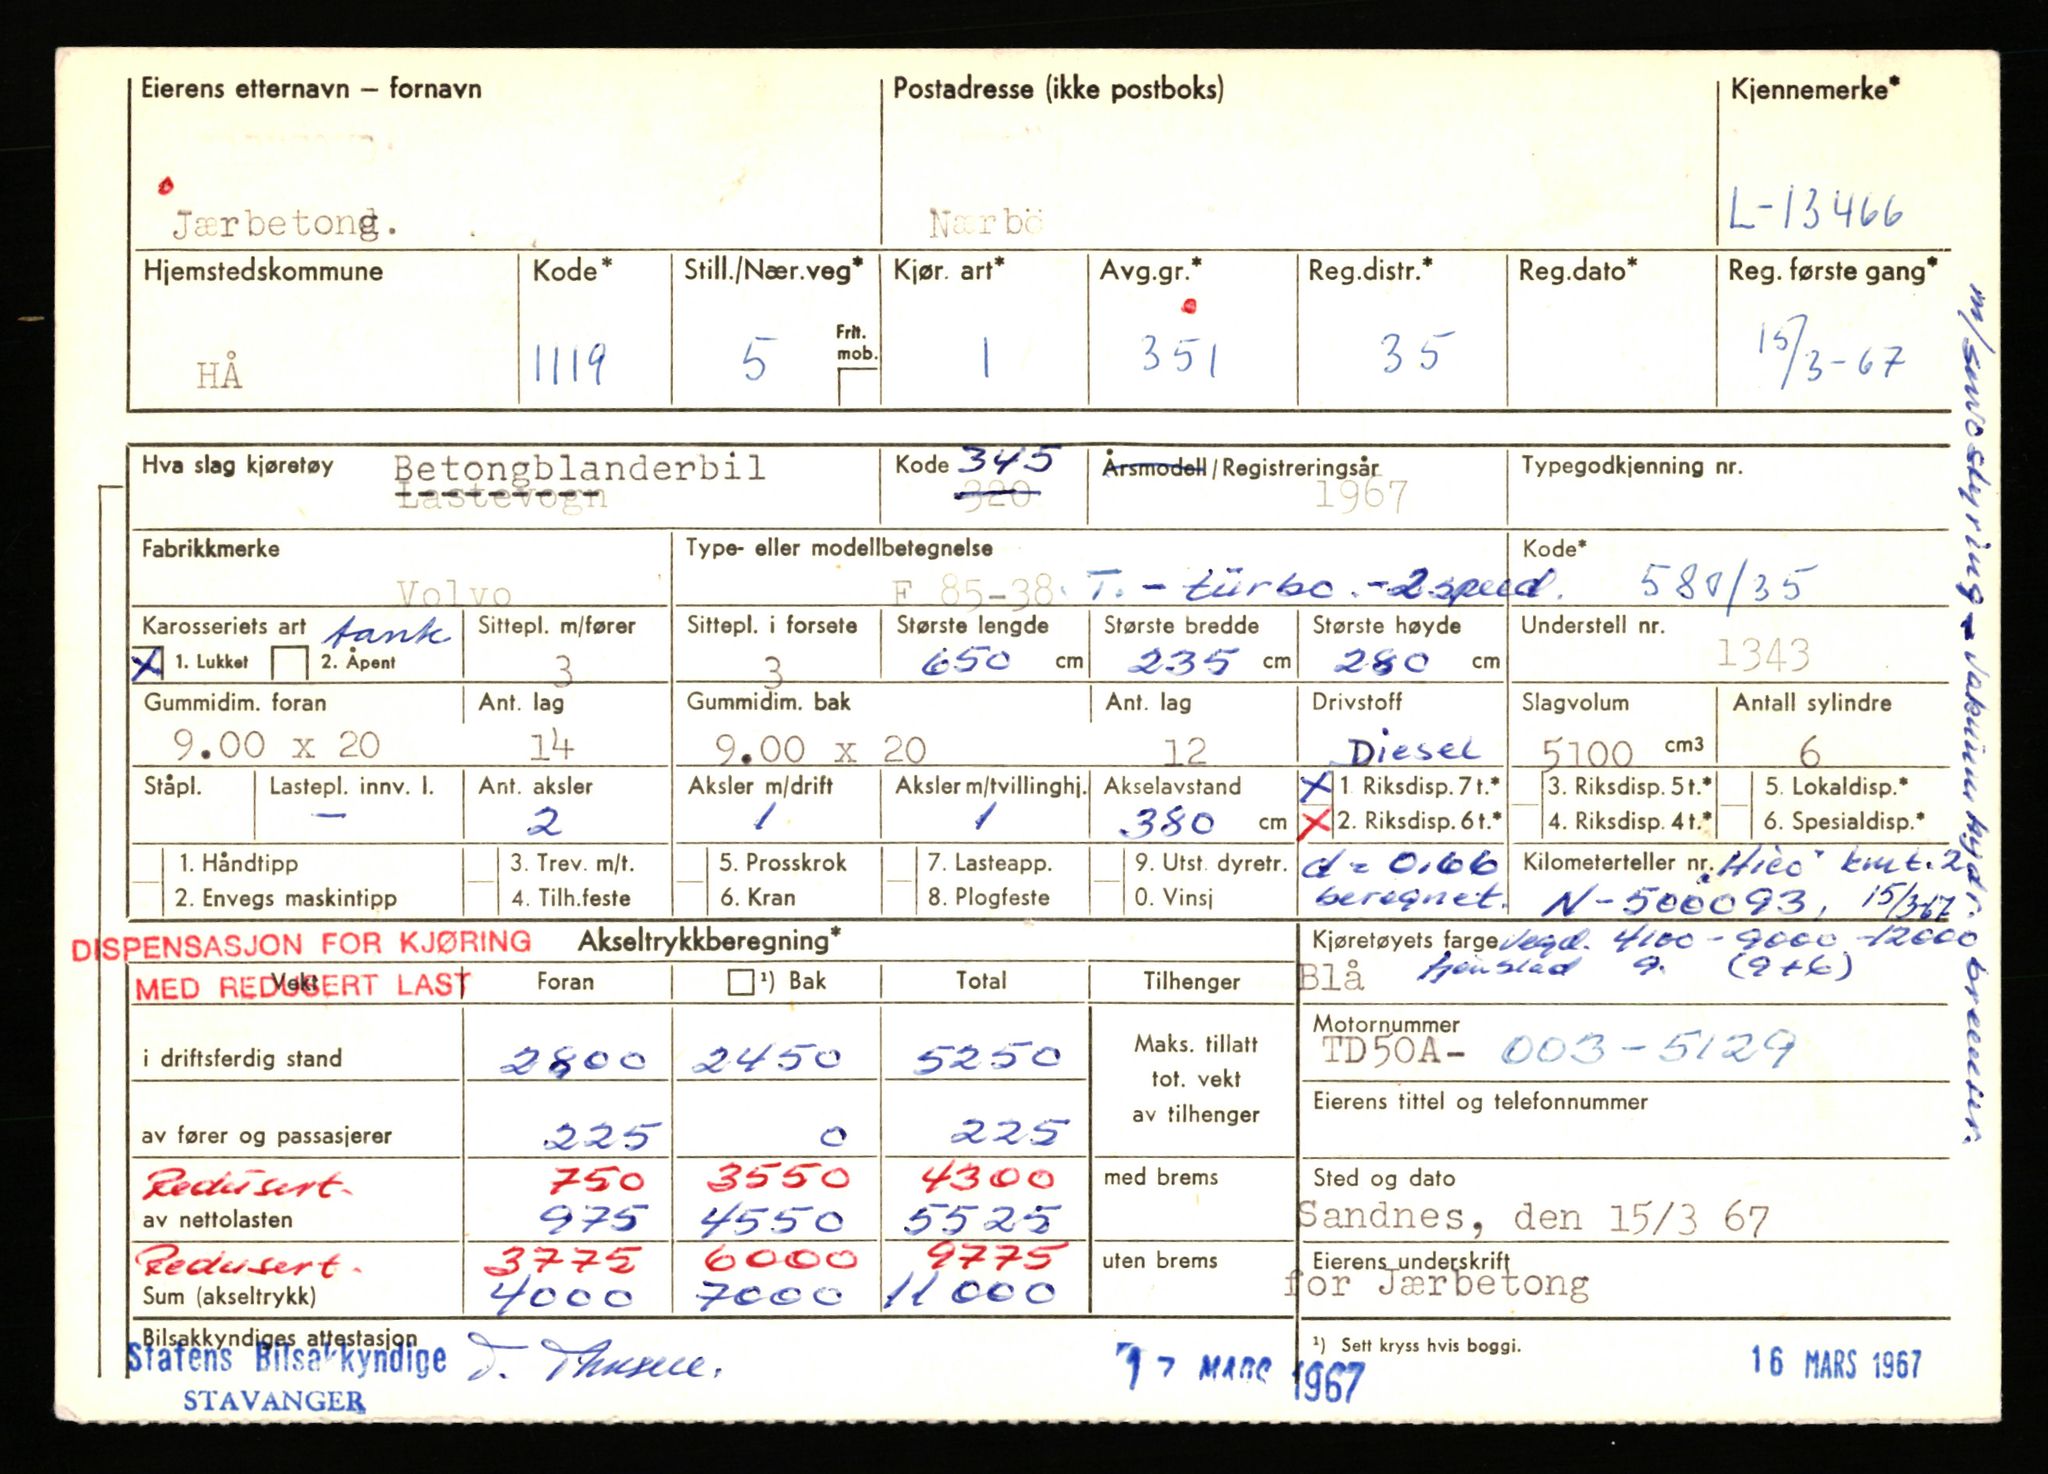 Eierens etternavn – fornavn
Postadresse (ikke postboks)
Kjennemerke*
Jærbetong.
Nærbö
L-13466
Hjemstedskommune
Kode*
Still./Nær.veg*
Kjør. art*
Avg.gr.*
Reg.distr.*
Reg.dato*
Reg. første gang*
Frit. mob.
HÅ
1119
5
1
351
35
15/3-67
Hva slag kjøretøy
Betongblanderbil
Lastevogn
Kode 345
320
Årsmodell/Registreringsår
1967
Typegodkjenning nr.
Fabrikkmerke
Volvo
Type- eller modellbetegnelse
F 85-38. T. - türbo. - 2 speed.
Kode*
580/35
Karosseriets art tank
X 1. Lukket 2. Åpent
Sittepl. m/fører
3
Sittepl. i forsete
3
Største lengde
650 cm
Største bredde
235 cm
Største høyde
280 cm
Understell nr.
1343
Gummidim. foran
9.00 x 20
Ant. lag
14
Gummidim. bak
9.00 x 20
Ant. lag
12
Drivstoff
Diesel
Slagvolum
5100 cm3
Antall sylindre
6
Ståpl.
Lastepl. innv. l.
–
Ant. aksler
2
Aksler m/drift
1
Aksler m/tvillinghj.
1
Akselavstand
380 cm
X 1. Riksdisp. 7 t.*
X 2. Riksdisp. 6 t.*
3. Riksdisp. 5 t.*
4. Riksdisp. 4 t.*
5. Lokaldisp.*
6. Spesialdisp.*
1. Håndtipp
2. Envegs maskintipp
3. Trev. m/t.
4. Tilh.feste
5. Prosskrok
6. Kran
7. Lasteapp.
8. Plogfeste
9. Utst. dyretr.
0. Vinsj
d = 0.66
beregnet.
Kilometerteller nr. "Hico" km t. 2
N-500093, 15/3-67
DISPENSASJON FOR KJØRING
MED REDUSERT LAST
Akseltrykkberegning*
Kjøretøyets farge Vegd. 4100 - 9000 - 12000
Blå 9. (9+6)
Vekt
Foran
¹) Bak
Total
Tilhenger
i driftsferdig stand
2800
2450
5250
Maks. tillatt
tot. vekt
av tilhenger
Motornummer
TD50A- 003-5129
Eierens tittel og telefonnummer
av fører og passasjerer
225
0
225
Redusert.
750
3550
4300
av nettolasten
975
4550
5525
med brems
Sted og dato
Sandnes, den 15/3 67
Redusert.
3775
6000
9775
Sum (akseltrykk)
4000
7000
11000
uten brems
Eierens underskrift
for Jærbetong
Bilsakkyndiges attestasjon
Statens Bilsakkyndige
STAVANGER
17 MARS 1967
¹) Sett kryss hvis boggi.
16 MARS 1967
m/servostyring - Vakuum hydr. bremser.